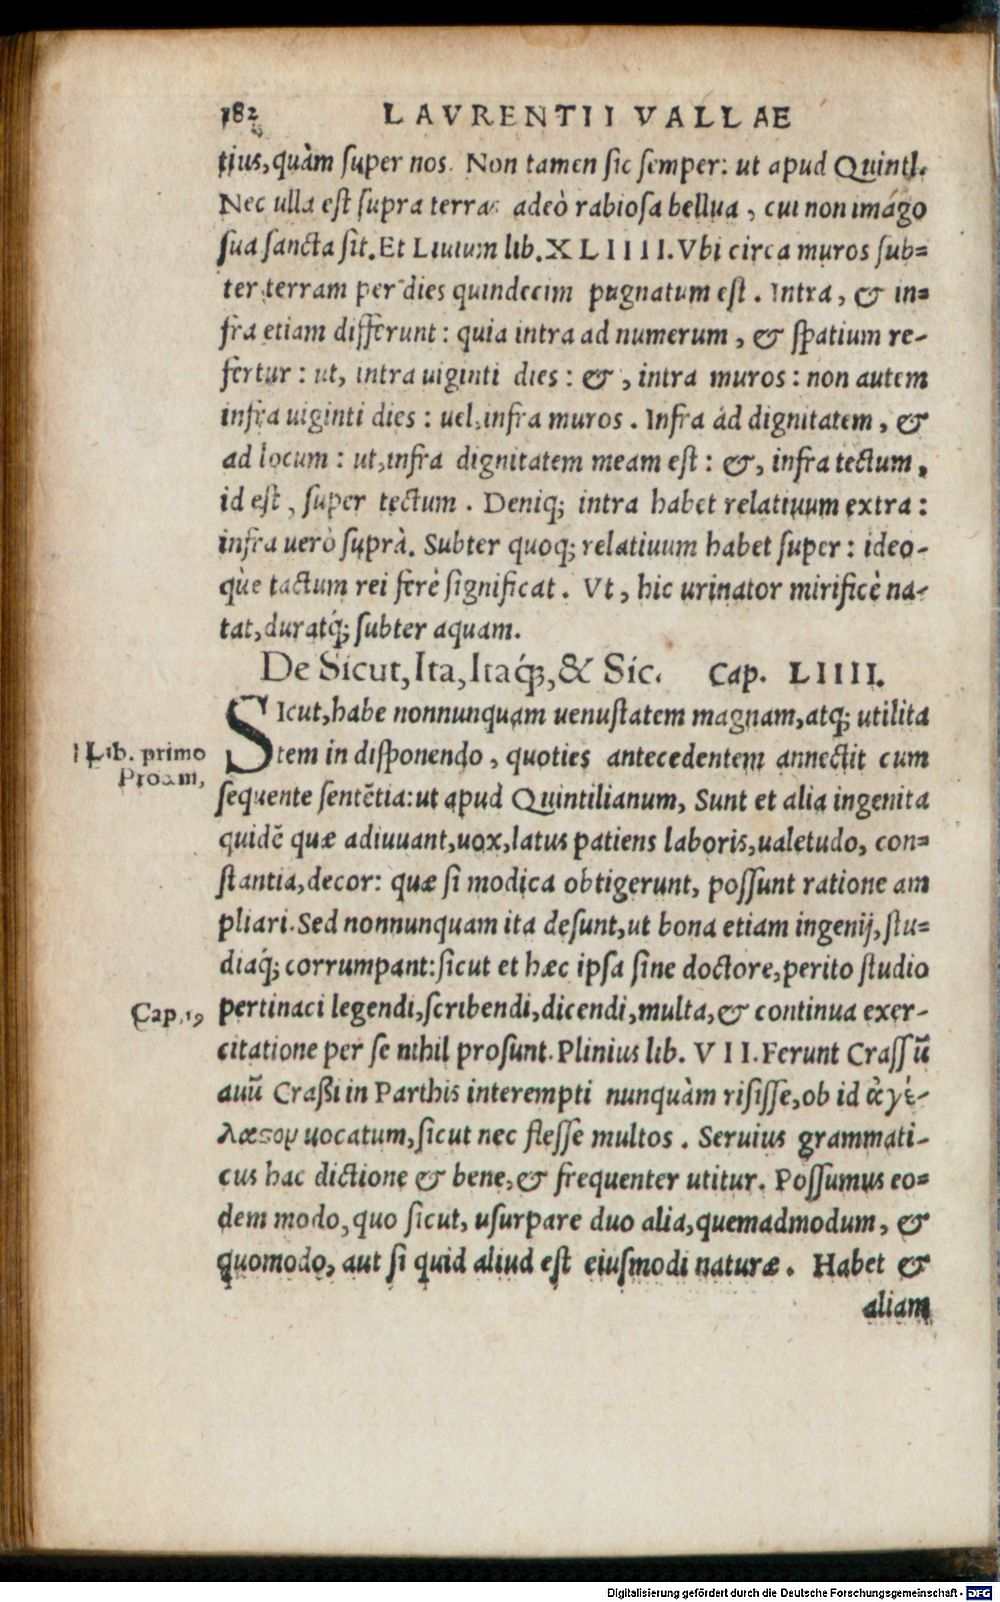 182 LAVRENTII VALLAE
tius, quàm super nos. Non tamen sic semper: ut apud Quintl.
Nec ulla est supra terras adeò rabiosa bellua, cui non imágo
sua sancta sit. Et Liuium lib. XLIIII. Vbi circa muros sub=
ter terram per dies quindecim pugnatum est. Intra, & in=
fra etiam differunt: quia intra ad numerum, & spatium re-
fertur: ut, intra uiginti dies: &, intra muros: non autem
infra uiginti dies: uel, infra muros. Infra ad dignitatem, &
ad locum: ut, infra dignitatem meam est: &, infra tectum,
id est, super tectum. Deniq; intra habet relatiuum extra:
infra uerò suprà. Subter quoq; relatiuum habet super: ideo-
q̀ue tactum rei ferè significat. Vt, hic urinator mirificè na-
tat, duratq́; subter aquam.
De Sicut, Ita, Itaq́;, & Sic. Cap. LIIII.
SIcut, habe nonnunquam uenustatem magnam, atq; utilita
Lib. primo Proœm,
tem in disponendo, quoties antecedentem annectit cum
sequente sentẽtia: ut apud Quintilianum, Sunt et alia ingenita
quidẽ quæ adiuuant, uox, latus patiens laboris, ualetudo, con=
stantia, decor: quæ si modica obtigerunt, possunt ratione am
pliari. Sed nonnunquam ita desunt, ut bona etiam ingenij, stu=
diaq́; corrumpant: sicut et hæc ipsa sine doctore, perito studio
Cap. 19
pertinaci legendi, scribendi, dicendi, multa, & continua exer-
citatione per se nihil prosunt. Plinius lib. VII. Ferunt Crassũ
auũ Craßi in Parthis interempti nunquàm risisse, ob id ἀγέ-
λαςον uocatum, sicut nec flesse multos. Seruius grammati-
cus hac dictione & bene, & frequenter utitur. Possumus eo=
dem modo, quo sicut, usurpare duo alia, quemadmodum, &
quomodo, aut si quid aliud est eiusmodi naturæ. Habet &
aliam
Digitalisierung gefördert durch die Deutsche Forschungsgemeinschaft - DFG